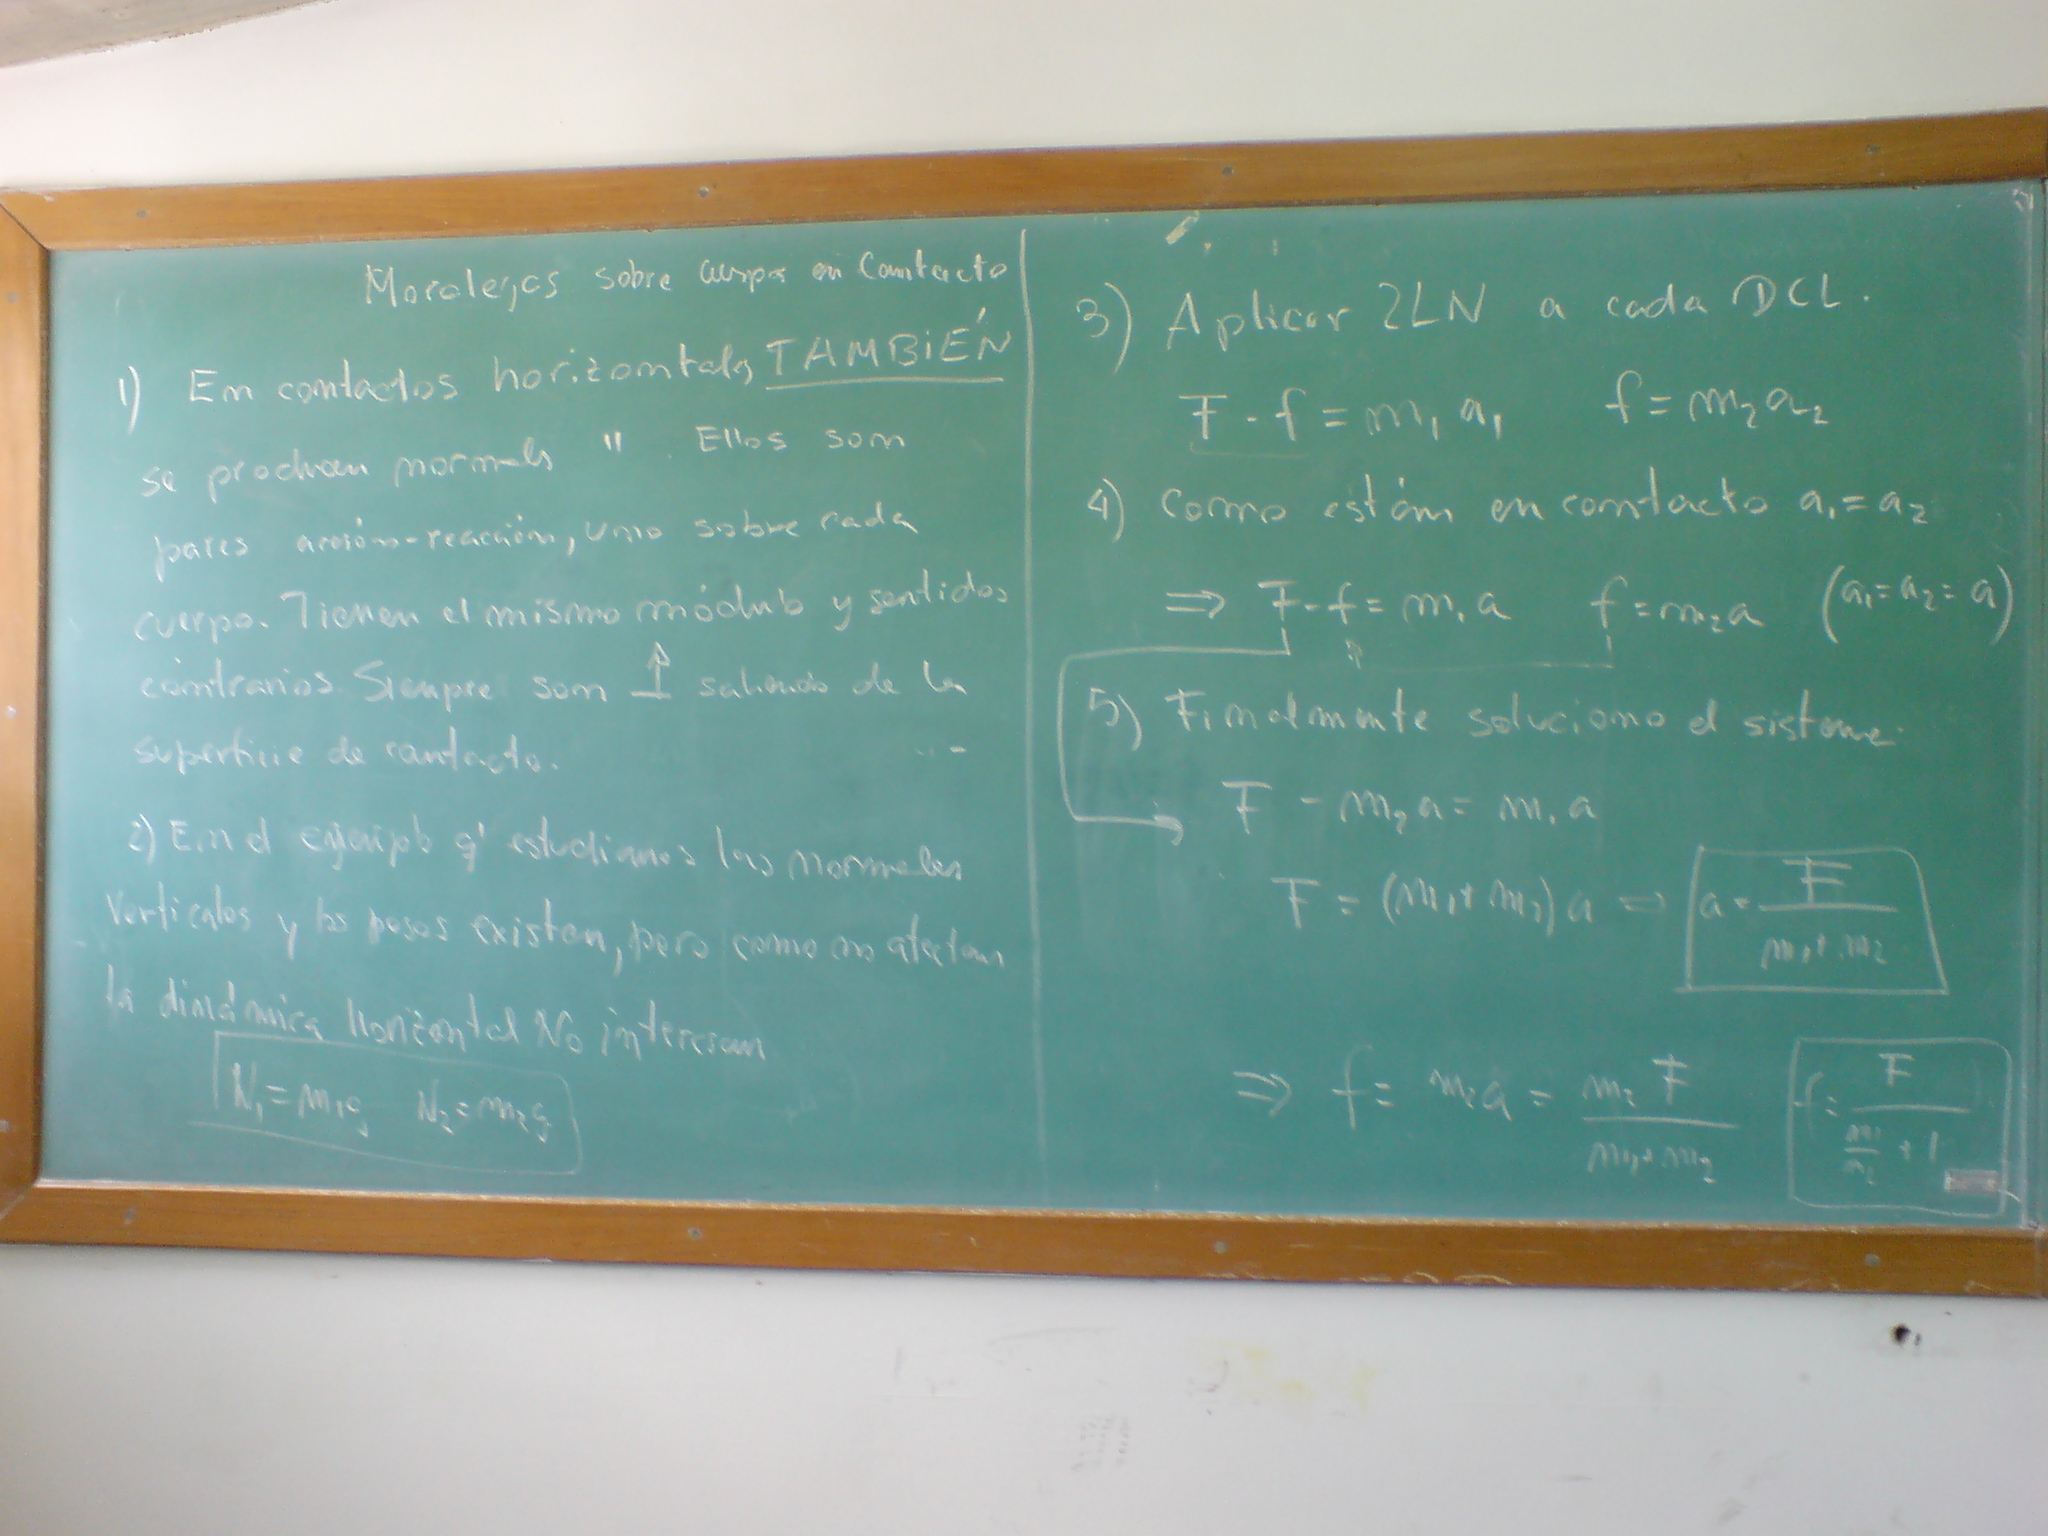 Moralejas sobre cuerpos en Contacto
1) En contactos horizontales TAMBIÉN
se producen normales " . Ellos son
pares acción-reacción, uno sobre cada
cuerpo. Tienen el mismo módulo y sentidos
contrarios. Siempre son ⊥ saliendo de la
superficie de contacto.
2) En el ejemplo q' estudiamos las normales
verticales y los pesos existen, pero como no afectan
la dinámica horizontal No interesan
N₁ = m₁g N₂ = m₂g
3) Aplicar 2LN a cada DCL.
F - f = m₁ a₁ f = m₂ a₂
4) Como están en contacto a₁ = a₂
⇒ F - f = m₁ a f = m₂ a (a₁ = a₂ = a)
5) Finalmente soluciono el sistema
F - m₂ a = m₁ a
F = (m₁ + m₂) a ⇒ a = F / (m₁ + m₂)
⇒ f = m₂ a = m₂ F / (m₁ + m₂) f = F / (m₁/m₂ + 1)